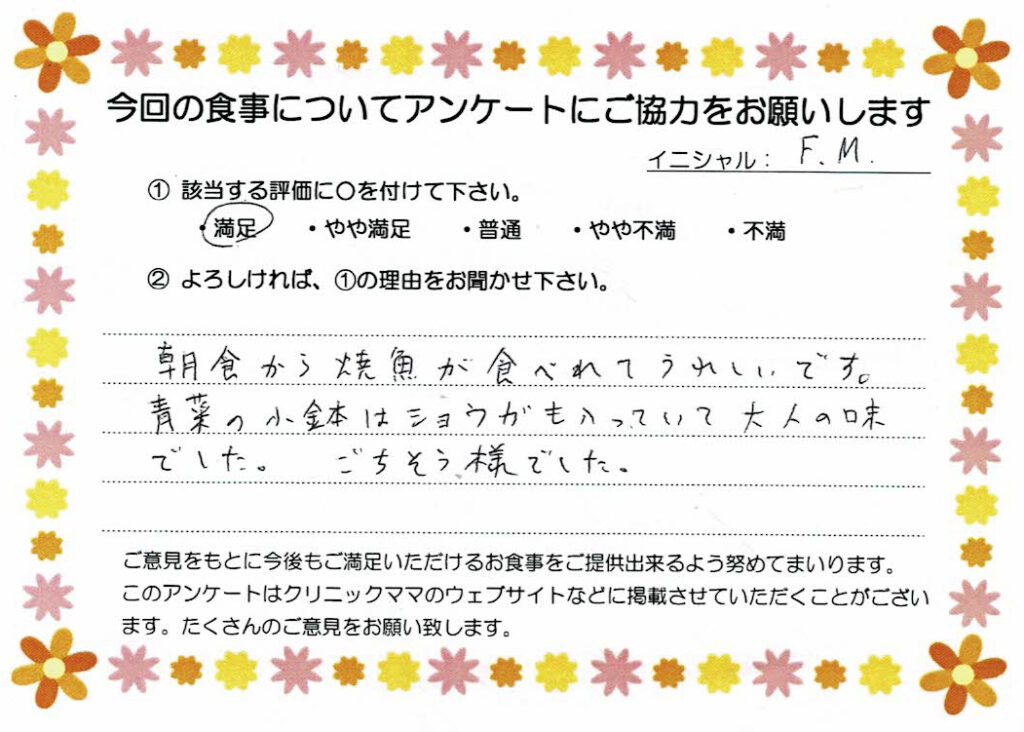 今回の食事についてアンケートにご協力をお願いします
イニシャル： F.M.
① 該当する評価に〇を付けて下さい。
・満足 ・やや満足 ・普通 ・やや不満 ・不満
② よろしければ、①の理由をお聞かせ下さい。
朝食から焼魚が食べれてうれしいです。
青菜の小鉢はショウガも入っていて大人の味
でした。 ごちそう様でした。
ご意見をもとに今後もご満足いただけるお食事をご提供出来るよう努めてまいります。
このアンケートはクリニックママのウェブサイトなどに掲載させていただくことがござい
ます。たくさんのご意見をお願い致します。